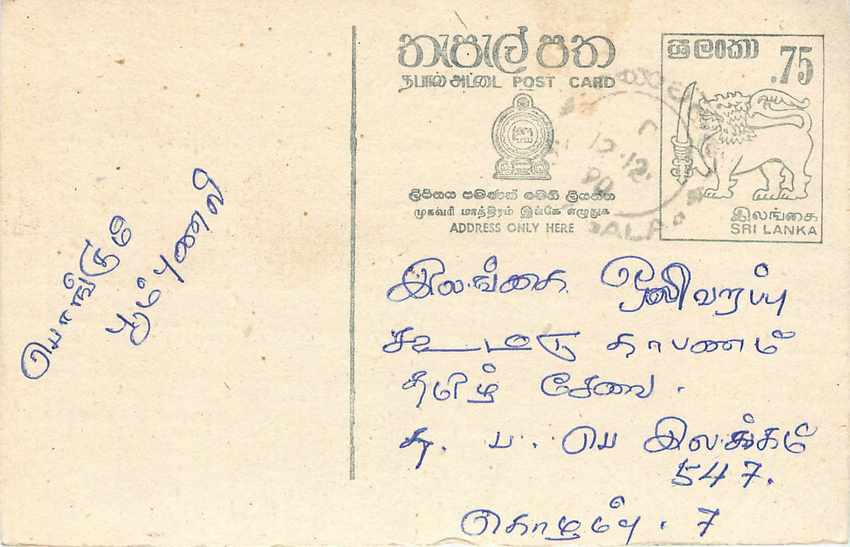 පොங்கும்
பூம்புனல்
තැපැල් පත
தபால் அட்டை POST CARD
ලිපිනය පමණක් මෙහි ලියන්න
முகவரி மாத்திரம் இங்கே எழுதுக
ADDRESS ONLY HERE
ශ්‍රී ලංකා
.75
இலங்கை
SRI LANKA
12.12.
90
இலங்கை ஒலிபரப்பு
கூட்டு தாபனம்
தமிழ் சேவை.
த. ப. பெ இலக்கம்
547.
கொழும்பு. 7